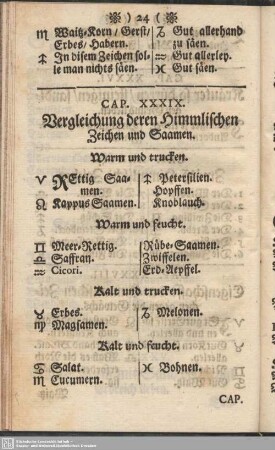 ) 24 (
♏ Waitz-Korn / Gerst / Erbes / Habern.
♐ In disem Zeichen solle man nichts säen.
♑ Gut allerhand zu säen.
♒ Gut allerley.
♓ Gut säen.
CAP. XXXIX.
Vergleichung deren Himmlischen
Zeichen und Saamen.
Warm und trucken.
♈ REttig Saamen.
♌ Kappus Saamen.
♐ Petersilien.
Hopffen.
Knoblauch.
Warm und feucht.
♊ Meer-Rettig.
♎ Saffran.
♒ Cicori.
Rübe-Saamen.
Zwiffelen.
Erd-Aepffel.
Kalt und trucken.
♉ Erbes.
♍ Magsamen.
♑ Melonen.
Kalt und feucht.
♋ Salat.
♏ Cucumern.
♓ Bohnen.
CAP.